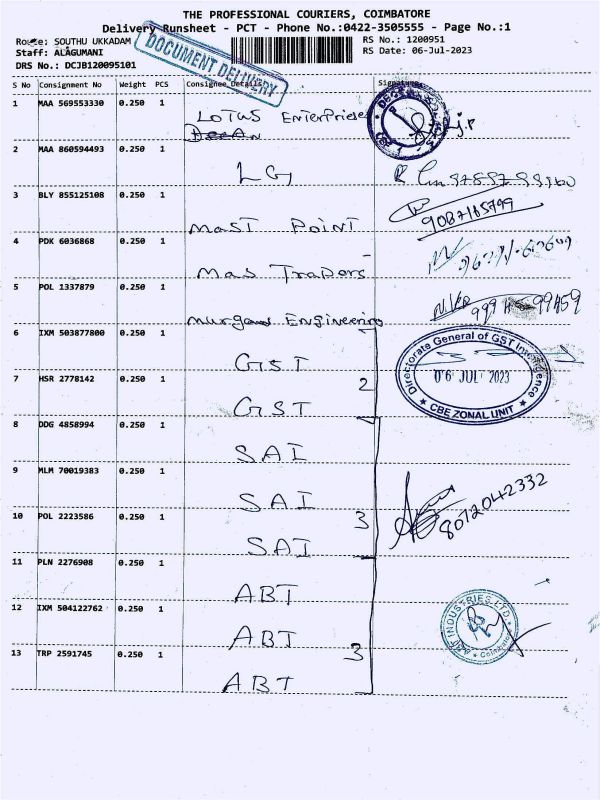 THE PROFESSIONAL COURIERS, COIMBATORE
Delivery Runsheet - PCT - Phone No.:0422-3505555 - Page No.:1
Route: SOUTHU UKKADAM
RS No.: 1200951
Staff: ALAGUMANI
RS Date: 06-Jul-2023
DRS No.: DCJB120095101
DOCUMENT DELIVERY
S No Consignment No Weight PCS Consignee Details Signature
1 MAA 569553330 0.250 1 LOTUS Enterprices
2 MAA 860594493 0.250 1 LG
3 BLY 855125108 0.250 1 MAST POINT
9087165799
4 PDK 6036868 0.250 1 MAS Traders
5 POL 1337879 0.250 1 Murgan Engineering
6 IXM 503877800 0.250 1 GST
Directorate General of GST Intelligence
06 JUL 2023
CBE ZONAL UNIT
7 HSR 2778142 0.250 1 GST 2
8 DDG 4858994 0.250 1 SAI
9 MLM 70019383 0.250 1 SAI
8072042332
10 POL 2223586 0.250 1 SAI 3
11 PLN 2276908 0.250 1 ABT
12 IXM 504122762 0.250 1 ABT
INDUSTRIES LTD
13 TRP 2591745 0.250 1 ABT 3